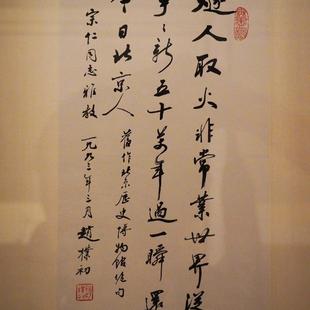 燧人取火非常業世界從
事々新五十萬年過一瞬還
今日北京人 舊作北京歷史博物館絕句
宗仁同志雅教 一九九三年三月 趙樸初